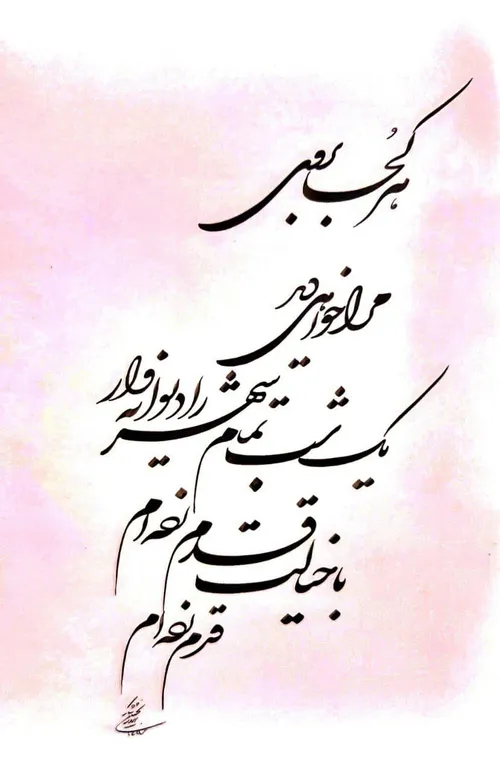 هر کجا بروی
مرا خواهی دید
یک شب تمام شهر را دیوانه وار
با خیالت قدم زده ام
قدم زده ام